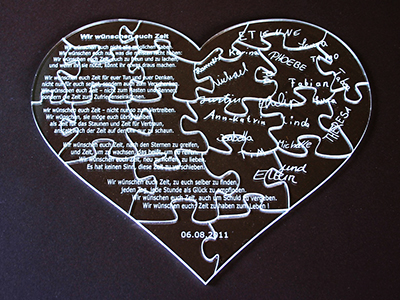 Wir wünschen euch Zeit
Wir wünschen euch nicht alle möglichen Gaben.
Wir wünschen euch nur, was die meisten nicht haben:
Wir wünschen euch Zeit, euch zu freun und zu lachen,
und wenn ihr sie nützt, könnt ihr etwas draus machen.
Wir wünschen euch Zeit für euer Tun und euer Denken,
nicht nur für euch selbst, sondern auch zum Verschenken.
Wir wünschen euch Zeit - nicht zum Hasten und Rennen,
sondern die Zeit zum Zufriedenseinkönnen.
Wir wünschen euch Zeit - nicht nur so zum Vertreiben.
Wir wünschen, sie möge euch übrig bleiben
als Zeit für das Staunen und Zeit für Vertraun,
anstatt nach der Zeit auf der Uhr nur zu schaun.
Wir wünschen euch Zeit, nach den Sternen zu greifen,
und Zeit, um zu wachsen, das heißt, um zu reifen.
Wir wünschen euch Zeit, neu zu hoffen, zu lieben.
Es hat keinen Sinn, diese Zeit zu verschieben.
Wir wünschen euch Zeit, zu euch selber zu finden,
jeden Tag, jede Stunde als Glück zu empfinden.
Wir wünschen euch Zeit, auch um Schuld zu vergeben.
Wir wünschen euch: Zeit zu haben zum Leben !
06.08.2011
ETIENNE
Karina
PHOEBE
Michael
Fabian
Philip
Ann-Katrin
Linda
Michelle
THERESA
und